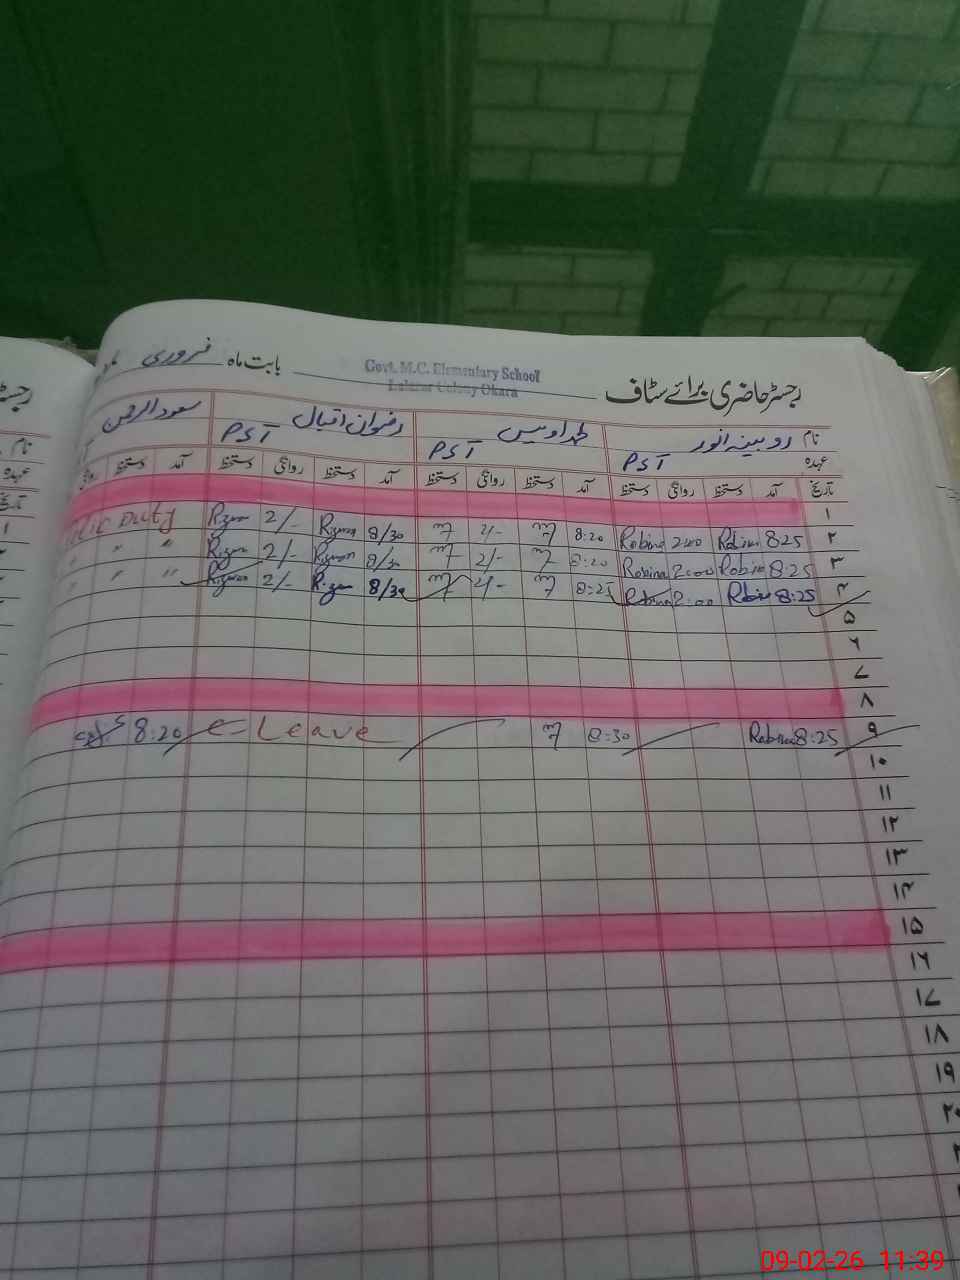 رجسٹر حاضری برائے سٹاف
Govt. M.C. Elementary School
Lalazar Colony Okara
بابت ماہ فروری
نام روبینہ انور طہ اویس رضوان اقبال سعود الرحمن
عہدہ PST PST PST
تاریخ آمد دستخط روانگی دستخط آمد دستخط روانگی دستخط آمد دستخط روانگی دستخط آمد دستخط
۱
۲ 8:25 Robina 2:00 Robina 8:20 2/- 8/30 Rizwan 2/- Rizwan Duty
۳ 8:25 Robina 2:00 Robina 8:20 2/- 8/30 Rizwan 2/- Rizwan " "
۴ 8:25 Robina 2:00 Robina 8:25 2/- 8/30 Rizwan 2/- Rizwan " "
۵
۶
۷
۸
۹ 8:25 Robina 8:30 e-Leave 8:20
۱۰
۱۱
۱۲
۱۳
۱۴
۱۵
۱۶
۱۷
۱۸
۱۹
۲۰
09-02-26 11:39